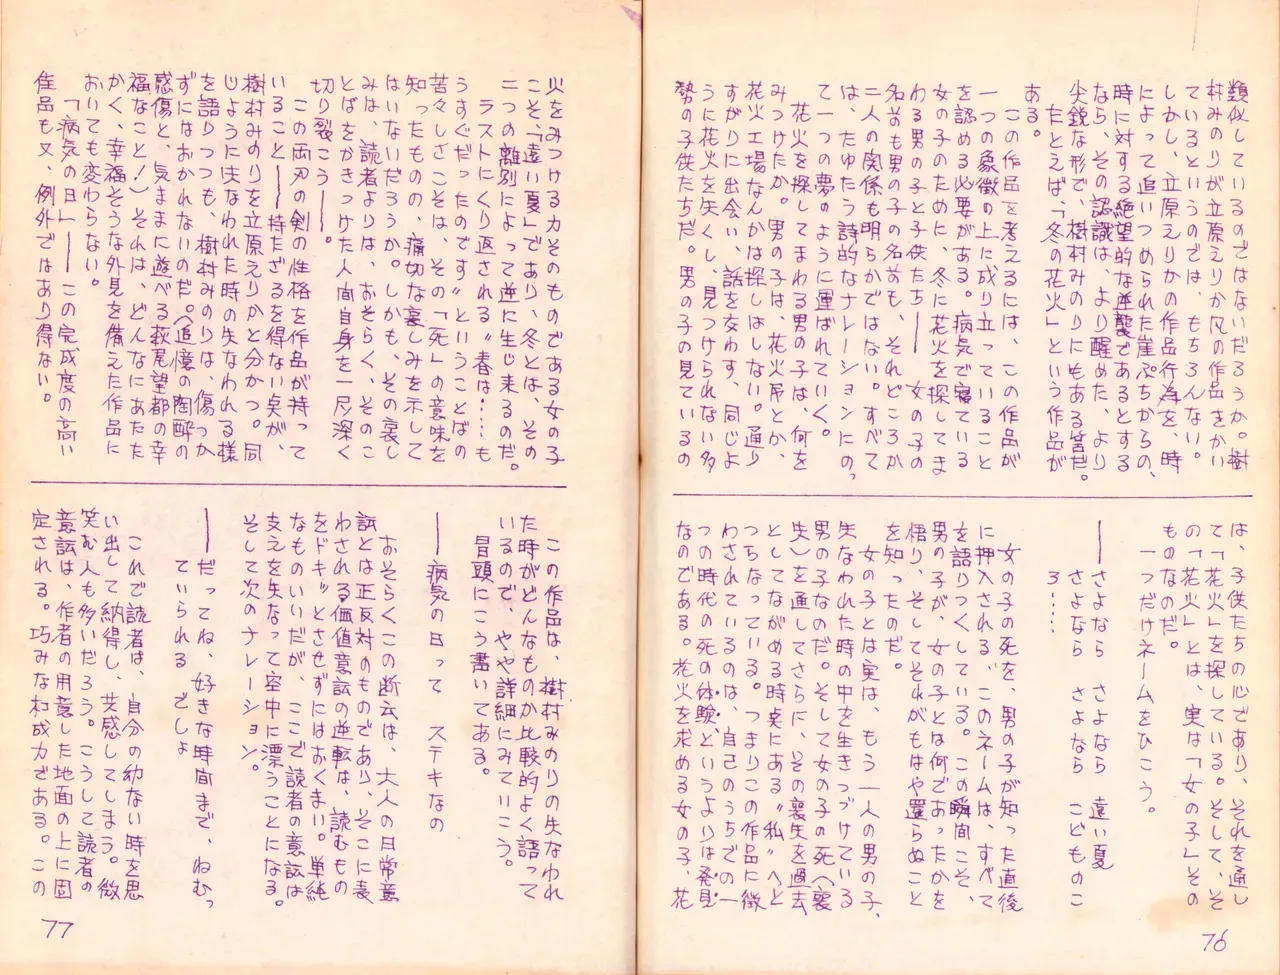 類似しているのではないだろうか。樹
村みのりが立原えりか風の作品をかい
ているというのでは、もちろんない。
しかし、立原えりかの作品行為を、時
によって追いつめられた崖ぷちからの、
時に対する絶望的な逆襲であるとする
なら、その認識は、より醒めた、より
尖鋭な形で、樹村みのりにもある筈だ。
たとえば、「冬の花火」という作品が
ある。
この作品を考えるには、この作品が
一つの象徴の上に成り立っていること
を認める必要がある。病気で寝ている
女の子のために、冬に花火を探してま
わる男の子と子供たち――女の子の
名前も男の子の名前も、それどころか
二人の関係も明らかではない。すべて
は、たゆたう詩的なナレーションにの っ
て一つの夢のように運ばれていく。
花火を探してまわる男の子は、何を
みつけたか。男の子は、花火吊とか、
花火工場なんかは探しはしない。通り
すがりに出会い、話を交わす、同じよ
うに花火を失くし、見つけられない多
勢の子供たちだ。男の子の見ているの
は、子供たちの心であり、それを通し
て「花火」を探している。そして、そ
の「花火」とは、実は「女の子」その
ものなのだ。
一つだけネームをひこう。
――さよなら さよなら 遠い夏
さよなら さよなら こどものこ
ろ‥‥
女の子の死を、男の子が知った直後
に押入される、このネームは、すべて
を語りつくしている。この瞬間こそ、
男の子が、女の子とは何であったかを
悟り、そしてそれがもはや還らぬこと
を知ったのだ。
女の子とは実は、もう一人の男の子、
失なわれた時の中を生きつづけている
男の子なのだ。そして女の子の死へ喪
失)を通してさらに、その喪失を過去
としてながめる時点にある〝私〟へと
つらなっている。つまりこの作品に徴
わされているのは、自己のうちでの一
つの時代の死の体験、というよりは発見
なのである。花火を求める女の子、花
76
火をみつける力そのものである女の子
こそ、「遠い夏」であり、冬とは、その
二つの離別によって逆に生じ来るのだ。
ラストにくり返される〝春は‥‥も
うすぐだったのです〟ということばの
苦々しさこそは、その「死」の意味を
知ったものの、痛切な哀しみを示して
はいないだろうか。しかも、その哀し
みは、読者よりは、おそらく、そのこ
とばをかきつけた人間自身を一層深く
切り裂こう――。
この両刃の剣の性格を作品が持って
いること――持たざるを得ない点が、
樹村みのりを立原えりかと分かつ。同
じようにうしなわれた時の失なわれる様
を語りつつも、樹村みのりは、傷つか
ずにはおかれないのだ。(追憶の陶酔の
感傷と、気ままに遊べる萩尾望都の幸
福なこと!)それは、どんなにあたた
かく、幸福そうな外見を備えた作品に
おいても変わらない。
「病気の日」――この完成度の高い
佳品も又、例外ではあり得ない。
この作品は、樹村みのりの失なわれ
た時がどんなものか比較的よく語って
いるので、やや詳細にみていこう。
冒頭にこう書いてある。
――病気の日って ステキなの
おそらくこの断云は、大人の日常意
識とは正反対のものであり、そこに表
わされる価値意識の逆転は、読むもの
をドキッとさせずにはおくまい。単純
なものいいだが、ここで読者の意識は
支えを失なって空中に漂うことになる。
そして次のナレーション。
――だってね、好きな時間まで、ねむっ
ていられる でしょ
これで読者は、自分の幼ない時を思
い出して納得し、共感してしまう。微
笑む人も多いだろう。こうして読者の
意識は、作者の用意した地面の上に固
定される。巧みな構成力である。この
77